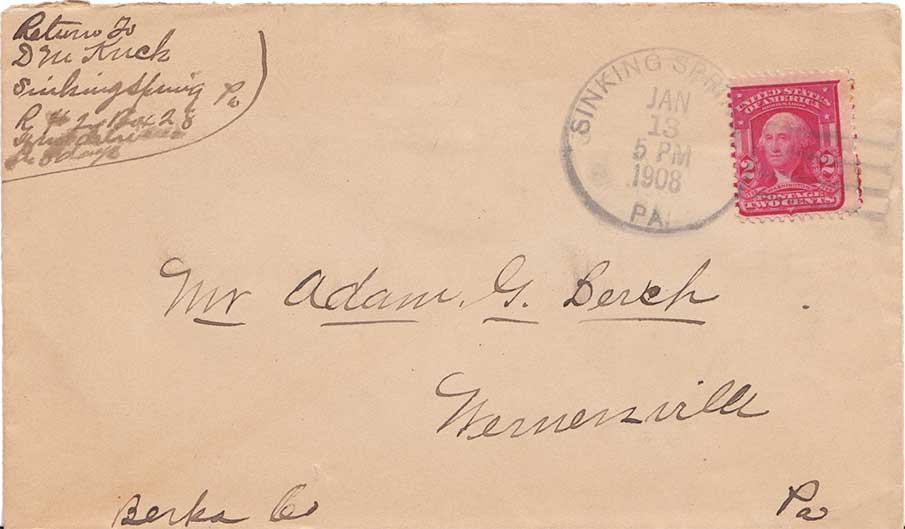 Return To
D M Ruck
Sinking Spring Pa
R # 2 Box 28
days
SINKING SPR
JAN
13
5 PM
1908
PA.
UNITED STATES
OF AMERICA
2 2
POSTAGE
TWO CENTS
Mr Adam G. Berch
Wernersville
Berks Co Pa